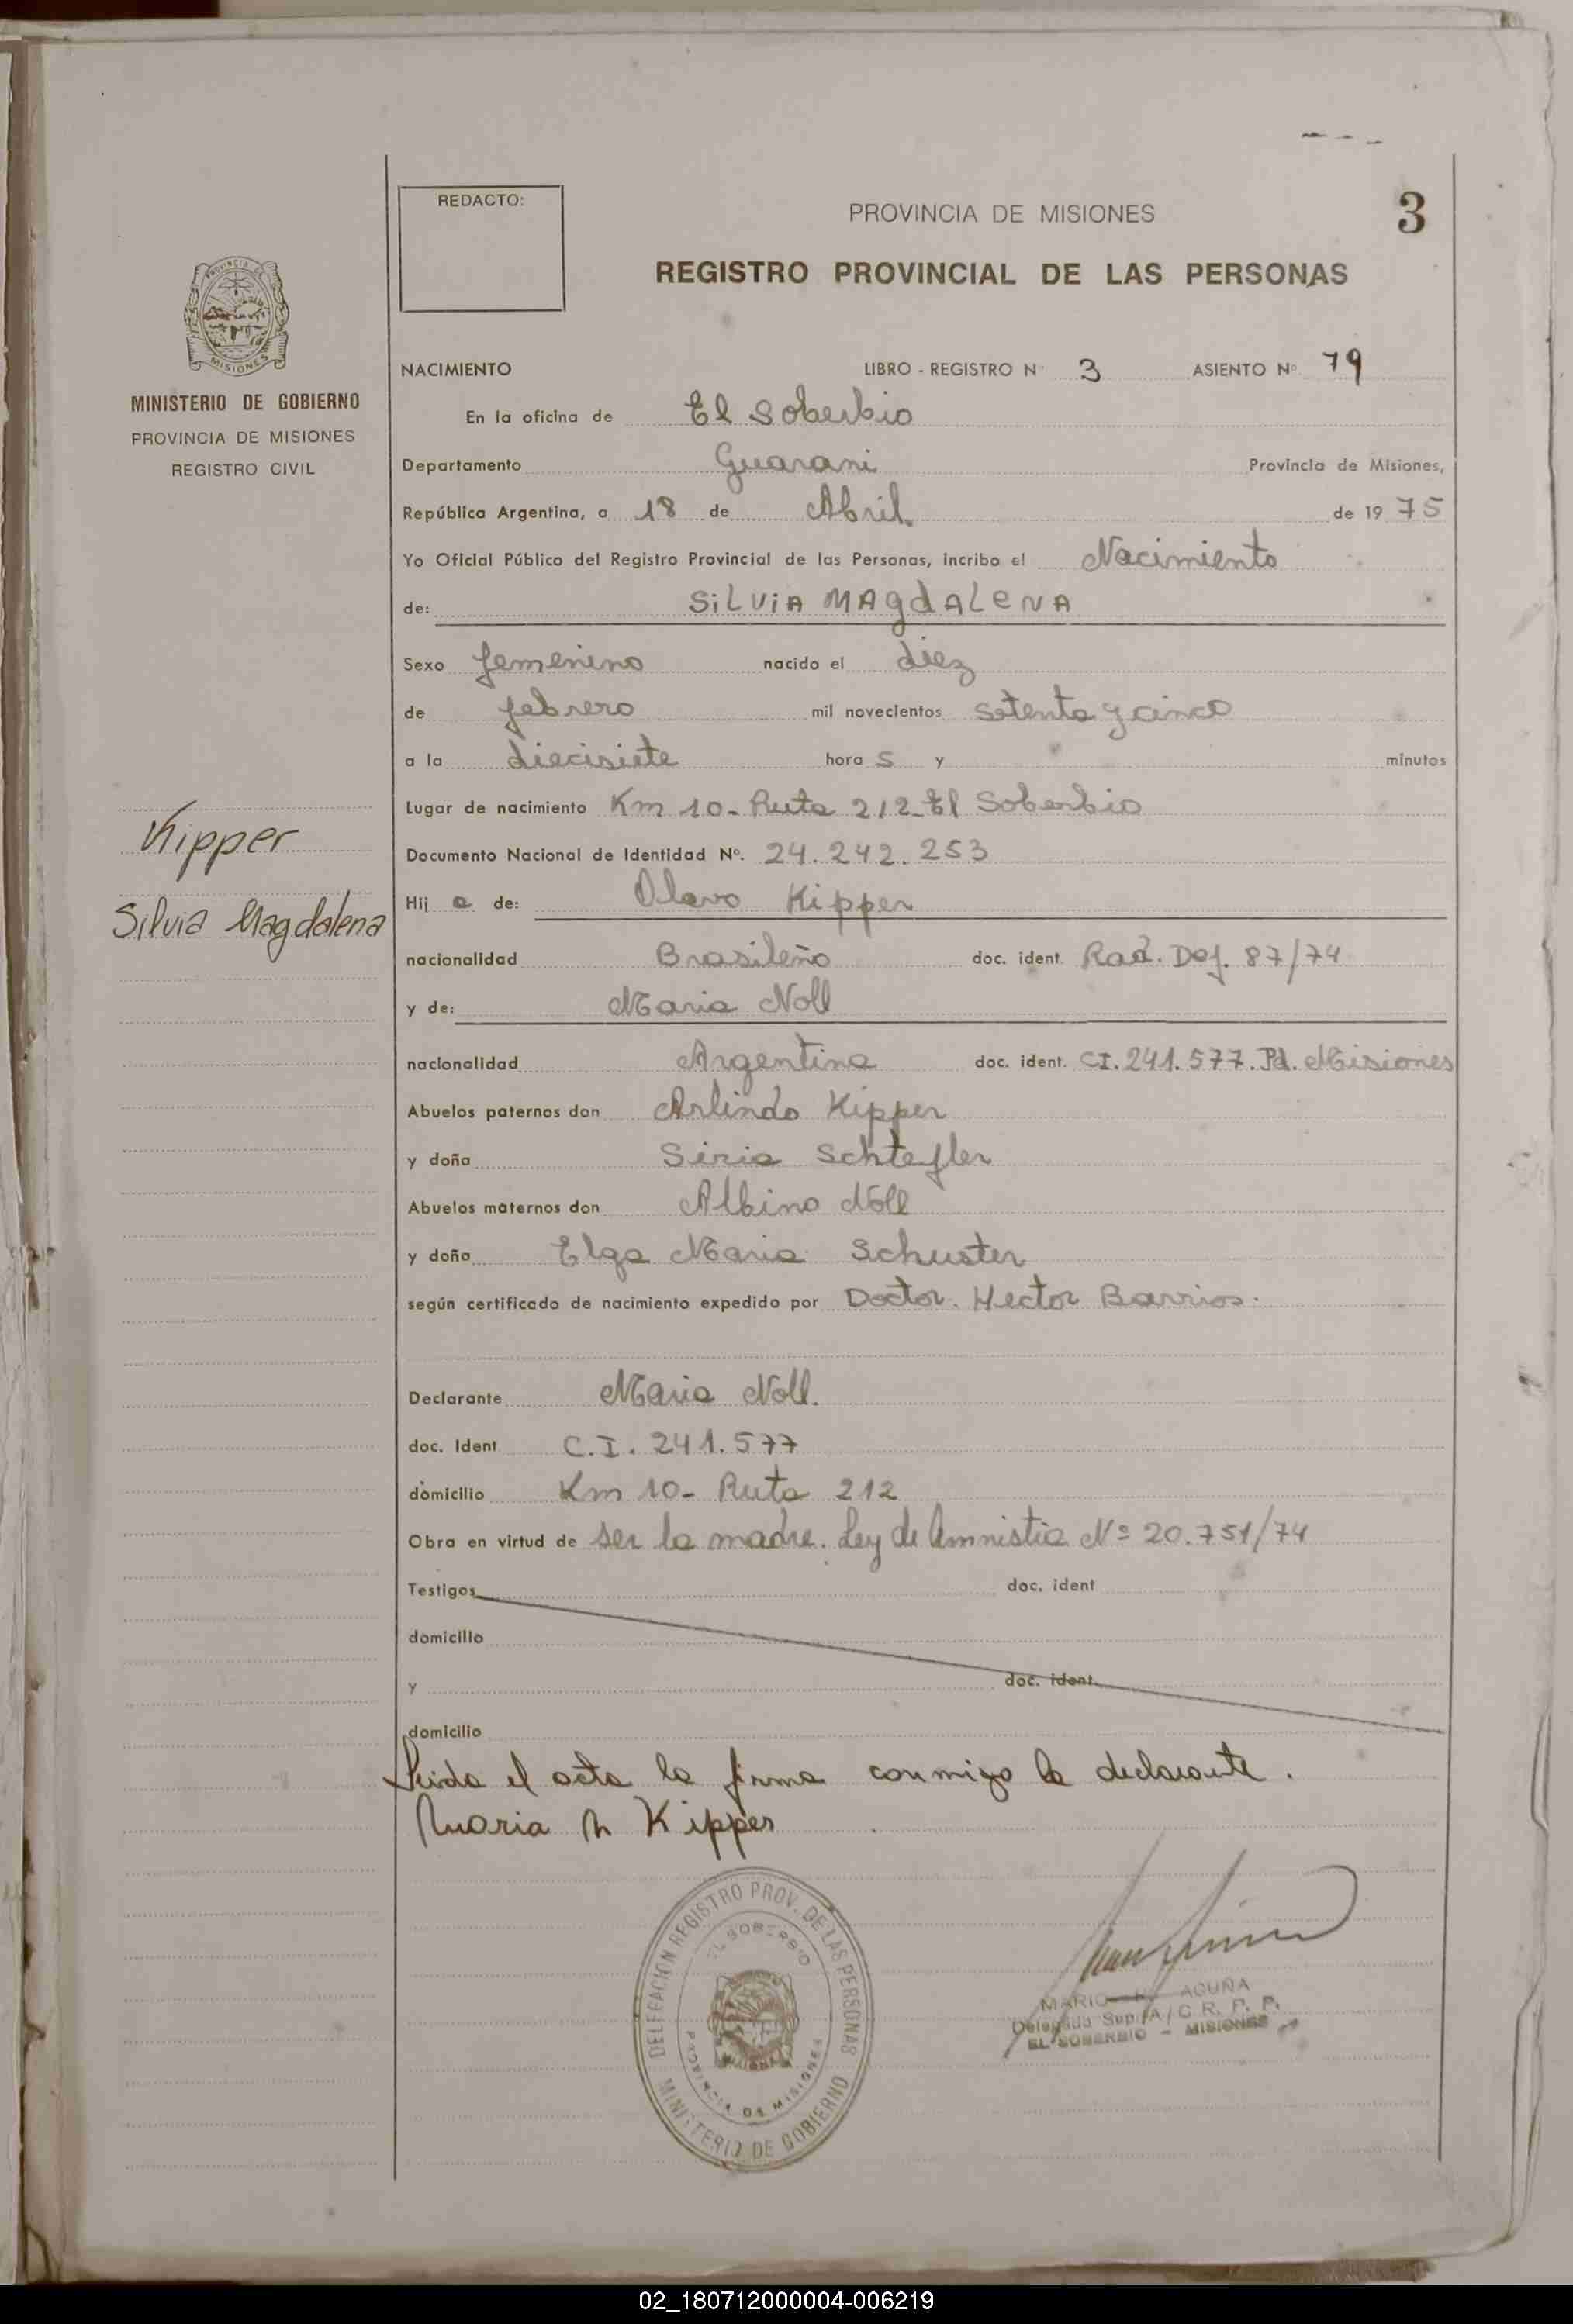 REDACTO:
PROVINCIA DE MISIONES
3
REGISTRO PROVINCIAL DE LAS PERSONAS
MISIONES
MINISTERIO DE GOBIERNO
PROVINCIA DE MISIONES
REGISTRO CIVIL
NACIMIENTO LIBRO - REGISTRO N° 3 ASIENTO N° 79
En la oficina de El Soberbio
Departamento Guarani Provincia de Misiones,
República Argentina, a 18 de Abril de 19 75
Yo Oficial Público del Registro Provincial de las Personas, incribo el Nacimiento
de: SiLViA MAgdALeNA
Sexo femenino nacido el diez
de febrero mil novecientos setenta y cinco
a la diecisiete hora s y minutos
Lugar de nacimiento Km 10 - Ruta 212 - El Soberbio
Documento Nacional de Identidad N°. 24.242.253
Kipper
Silvia Magdalena
Hij a de: Olavo Kipper
nacionalidad Brasileño doc. ident. Rad. Def. 87/74
y de: Maria Noll
nacionalidad Argentina doc. ident. CI. 241.577. Pd. Misiones
Abuelos paternos don Arlindo Kipper
y doña Siria Schtefler
Abuelos maternos don Albino Noll
y doña Elga Maria Schuster
según certificado de nacimiento expedido por Doctor. Hector Barrios.
Declarante Maria Noll.
doc. Ident C.I. 241.577
domicilio Km 10 - Ruta 212
Obra en virtud de ser la madre. Ley de Amnistia Nº 20.751/74
Testigos doc. ident
domicilio
y doc. ident.
domicilio
Leida el acta la firma conmigo la declarante.
Maria N Kipper
DELEGACION REGISTRO PROV. DE LAS PERSONAS
EL SOBERBIO
PROVINCIA DE MISIONES
MINISTERIO DE GOBIERNO
MARIO ACUÑA
Delegado Sup. A/C R. P. P.
EL SOBERBIO - MISIONES
02_180712000004-006219